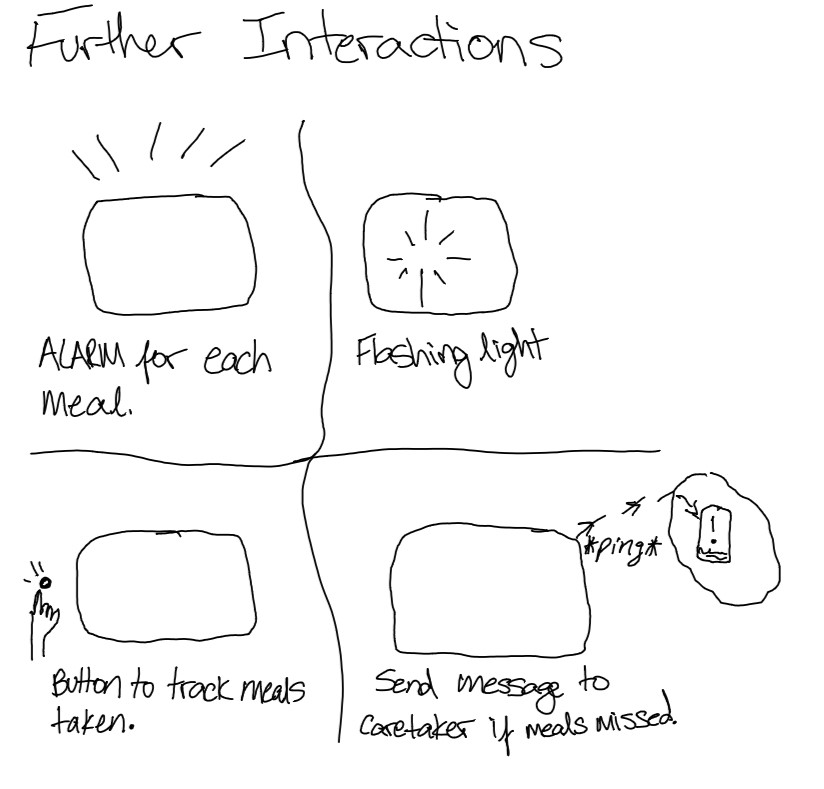 Further Interactions
ALARM for each
meal.
Flashing light
Button to track meals
taken.
*ping*
!
Send message to
caretaker if meals missed.